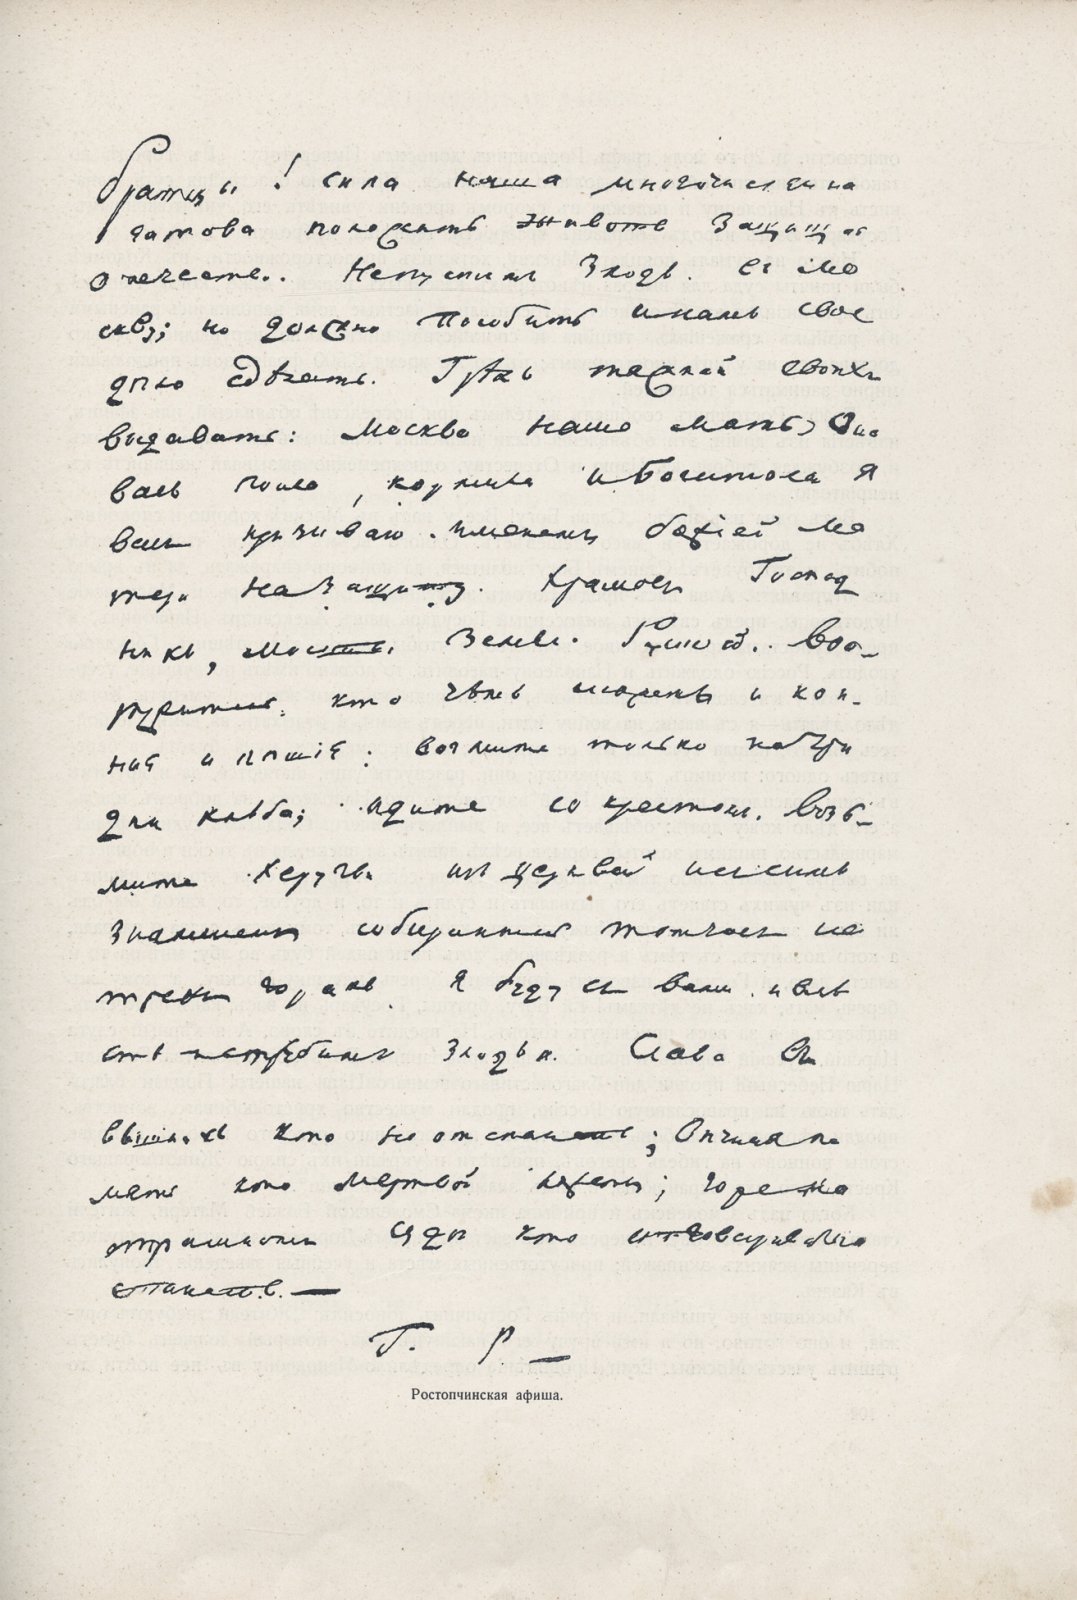 Братцы! сила наша многочисленна
готова положить животъ защищая
отечество. Непустимъ Злодѣя въ Мо
скву; но должно пособить и намъ свое
дѣло сдѣлать. Грѣхъ тяжкой своихъ
выдавать: Москва наша мать; Она
васъ поила, кормила и Богатила Я
васъ призываю имянемъ божіей Ма
тери на Защиту храмовъ Господ
нихъ, Москвы, Земли Руской. Воо-
ружитесь, кто чѣмъ можетъ и кон-
ніе и пѣшіе; возмите только на три
дни хлѣба; идите со крестомъ. Возь-
мите Херугви изъ церквей и съ симъ
Знаменіемъ собирайтесь тотчасъ на
трехъ горахъ Я буду съ вами и вмѣ
стѣ истребимъ Злодѣя. Слава въ
вышнихъ кто не отстанетъ; Вѣчная па
мять кто мертвой ляжетъ; горе на
страшномъ судѣ кто отговариваться
станетъ. —
Г. Р. —
Ростопчинская афиша.